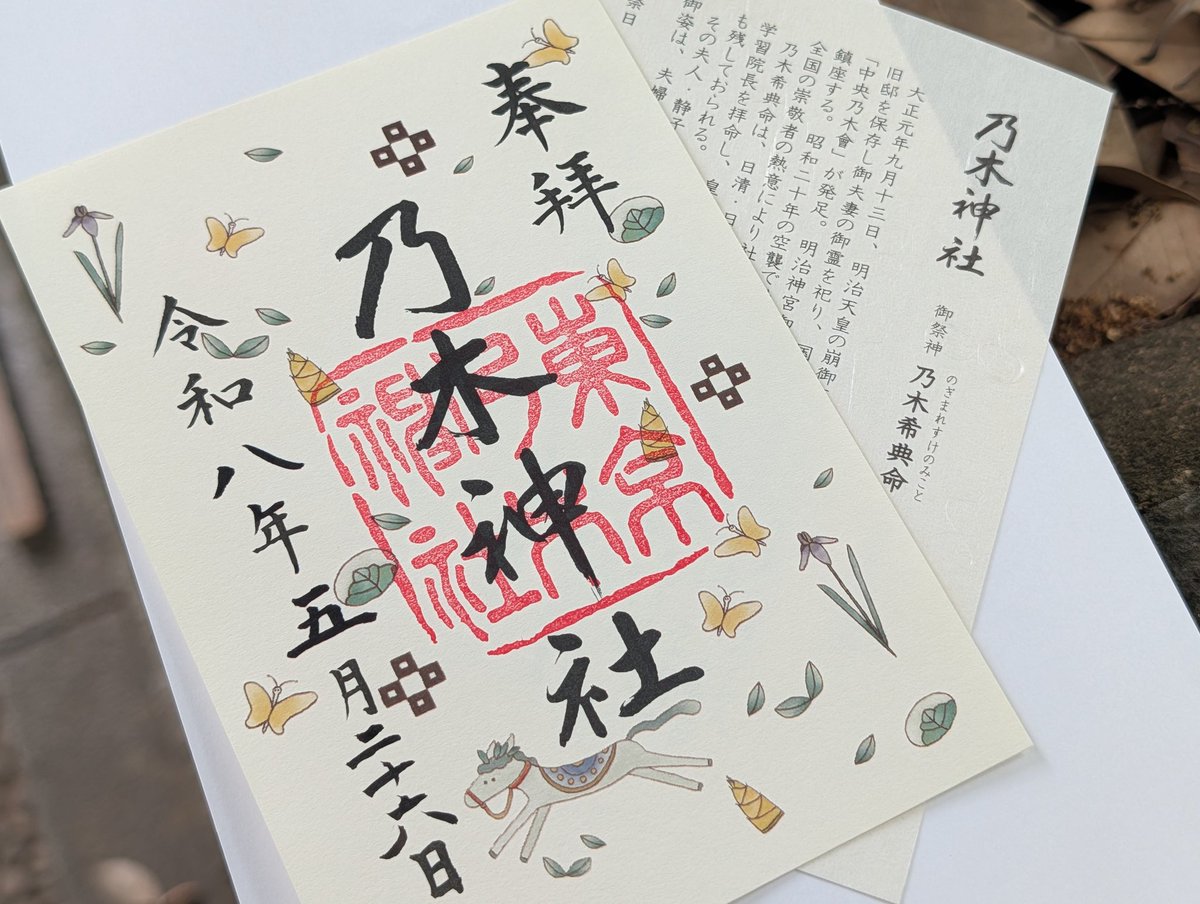 奉拝
乃木神社
令和八年五月二十六日
東京
乃木
神社
乃木神社
御祭神 乃木希典命
のぎまれすけのみこと
大正元年九月十三日、明治天皇の崩御
旧邸を保存し御夫妻の御霊を祀り、国
「中央乃木會」が発足。明治神宮御
鎮座する。昭和二十年の空襲で
全国の崇敬者の熱意により社
乃木希典命は、日清・日
学習院長を拝命し、皇
も残しておられる。
その夫人・静子
御姿は、夫婦
祭日